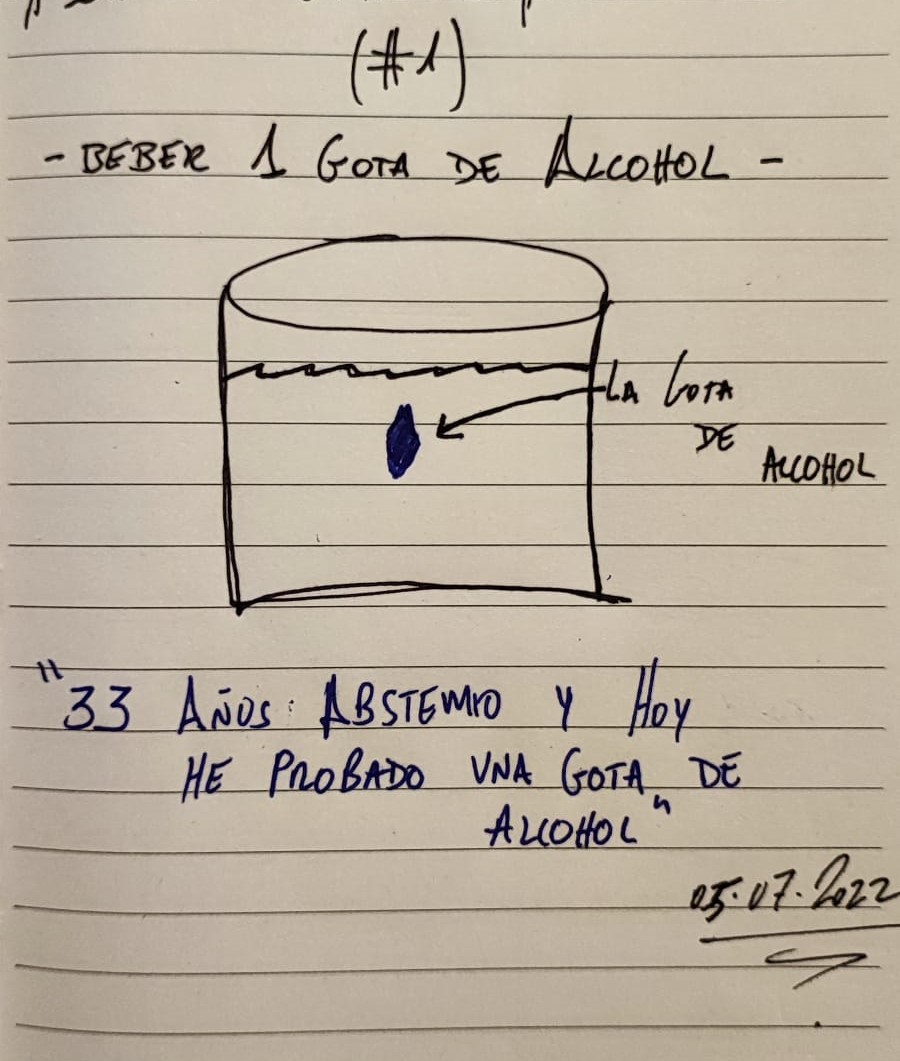 (#1)
- BEBER 1 GOTA DE ALCOHOL -
LA GOTA
DE
ALCOHOL
"33 AÑOS ABSTEMIO Y HOY
HE PROBADO UNA GOTA DE
ALCOHOL"
05.07.2022